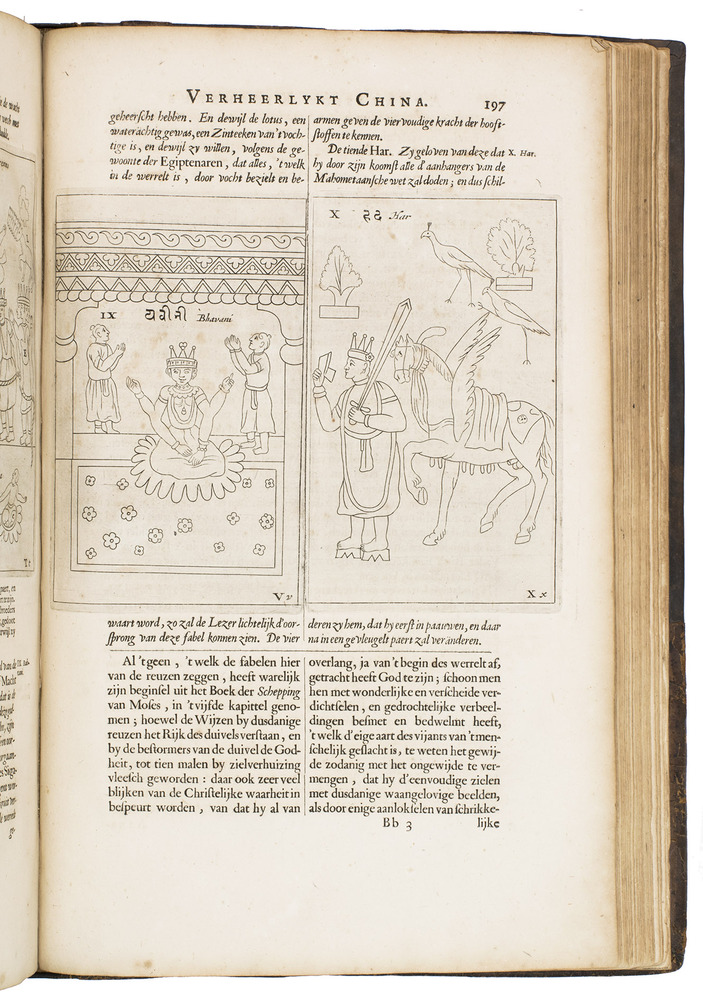 VERHEERLYKT CHINA. 197
geheerscht hebben. En dewijl de lotus, een
waterachtig gewas, een Zinteeken van 't voch-
tige is, en dewijl zy willen, volgens de ge-
woonte der Egiptenaren, dat alles, 't welk
in de werrelt is, door vocht bezielt en be-
armen geven de viervoudige kracht der hooft-
stoffen te kennen.
De tiende Har. Zy geloven van deze dat
X. Har.
hy door zijn koomst alle d'aanhangers van de
Mahometaansche wet zal doden; en dus schil-
IX
Bhavani
V v
X हर Har
X x
waart word, zo zal de Lezer lichtelijk d'oor-
sprong van deze fabel konnen zien. De vier
deren zy hem, dat hy eerst in paauwen, en daar
na in een gevleugelt paert zal veränderen.
Al 't geen, 't welk de fabelen hier
van de reuzen zeggen, heeft warelijk
zijn beginsel uit het Boek der Schepping
van Moses, in 't vijfde kapittel geno-
men; hoewel de Wijzen by dusdanige
reuzen het Rijk des duivels verstaan, en
by de bestormers van de duivel de God-
heit, tot tien malen by zielverhuizing
vleesch geworden: daar ook zeer veel
blijken van de Christelijke waarheit in
bespeurt worden, van dat hy al van
overlang, ja van 't begin des werrelt af,
getracht heeft God te zijn; schoon men
hen met wonderlijke en verscheide ver-
dichtselen, en gedrochtelijke verbeel-
dingen besmet en bedwelmt heeft,
't welk d'eige aart des vijants van 't men-
schelijk geslacht is, te weten het gewij-
de zodanig met het ongewijde te ver-
mengen, dat hy d'eenvoudige zielen
met dusdanige waangelovige beelden,
als door enige aanlokselen van schrikke-
Bb 3 lijke